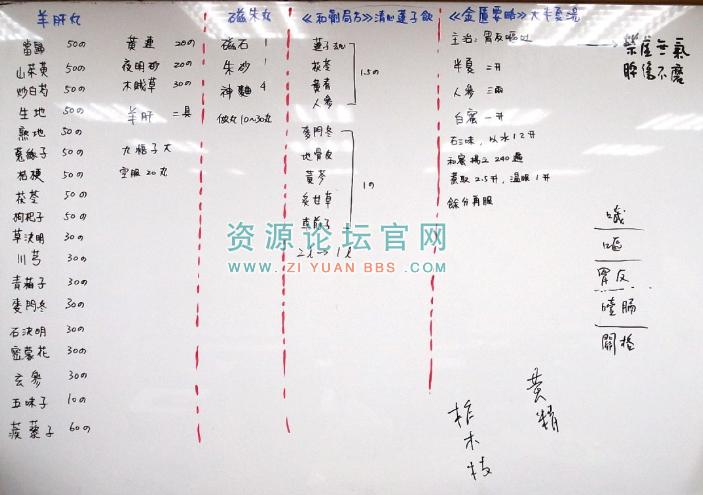 羊肝丸
當歸 50の
山茱萸 50の
炒白芍 50の
生地 50の
熟地 50の
菟絲子 50の
桔梗 50の
茯苓 50の
枸杞子 50の
草決明 30の
川芎 30の
青葙子 30の
麥門冬 30の
石決明 30の
密蒙花 30の
玄參 30の
五味子 10の
蒺藜子 60の
黃連 20の
夜明砂 20の
木賊草 30の
羊肝 二具
丸梧子大
空腹20丸
磁朱丸
磁石 1
朱砂 1
神麴 4
做丸10~30丸
《和劑局方》清心蓮子飲
蓮子
茯苓
黃耆
人參
1.5の
麥門冬
地骨皮
黃芩
炙甘草
車前子
1の
2l → 1l
《金匱要略》大半夏湯
主治:胃反嘔吐
半夏 二升
人參 三兩
白蜜 一升
右三味,以水12升
和蜜揚之240遍
煮取2.5升,溫服1升
餘分再服
榮虛無氣
脾傷不磨
噦
嘔
胃反
噎膈
關格
黃精
柞木枝
资源论坛官网
WWW.ZIYUANBBS.COM